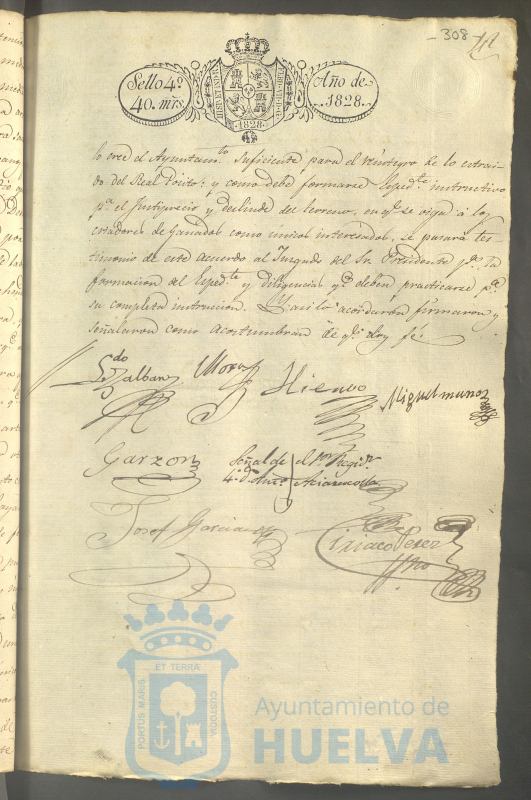 308
Sello 4º
40. mrs.
1828.
Año de
1828.
lo cree el Ayuntamto. suficiente para el reintegro de lo extrai-
do del Real Posito: y como debe formarse Espedte. instructivo
pa. el Justiprecio y deslinde del terreno, en qe. se oiga á los
criadores de Ganados como unicos interesados, se pasará tes-
timonio de este acuerdo al Juzgado del Sr. Presidente pa. la
formacion del Espedte. y diligencias qe. deben practicarse pa.
su completa instruccion. Y asi lo acordaron firmaron y
señalaron como acostumbran de qe. doy fé.
Mora Hierro Miguel muños
Garzon Señal de el Sr. Regidr.
4º. D. Anto. Azcaracolla
Josef Garcia
Ciriaco Perez
PORTUS MARIS ET TERRÆ CUSTODIA
Ayuntamiento de
HUELVA